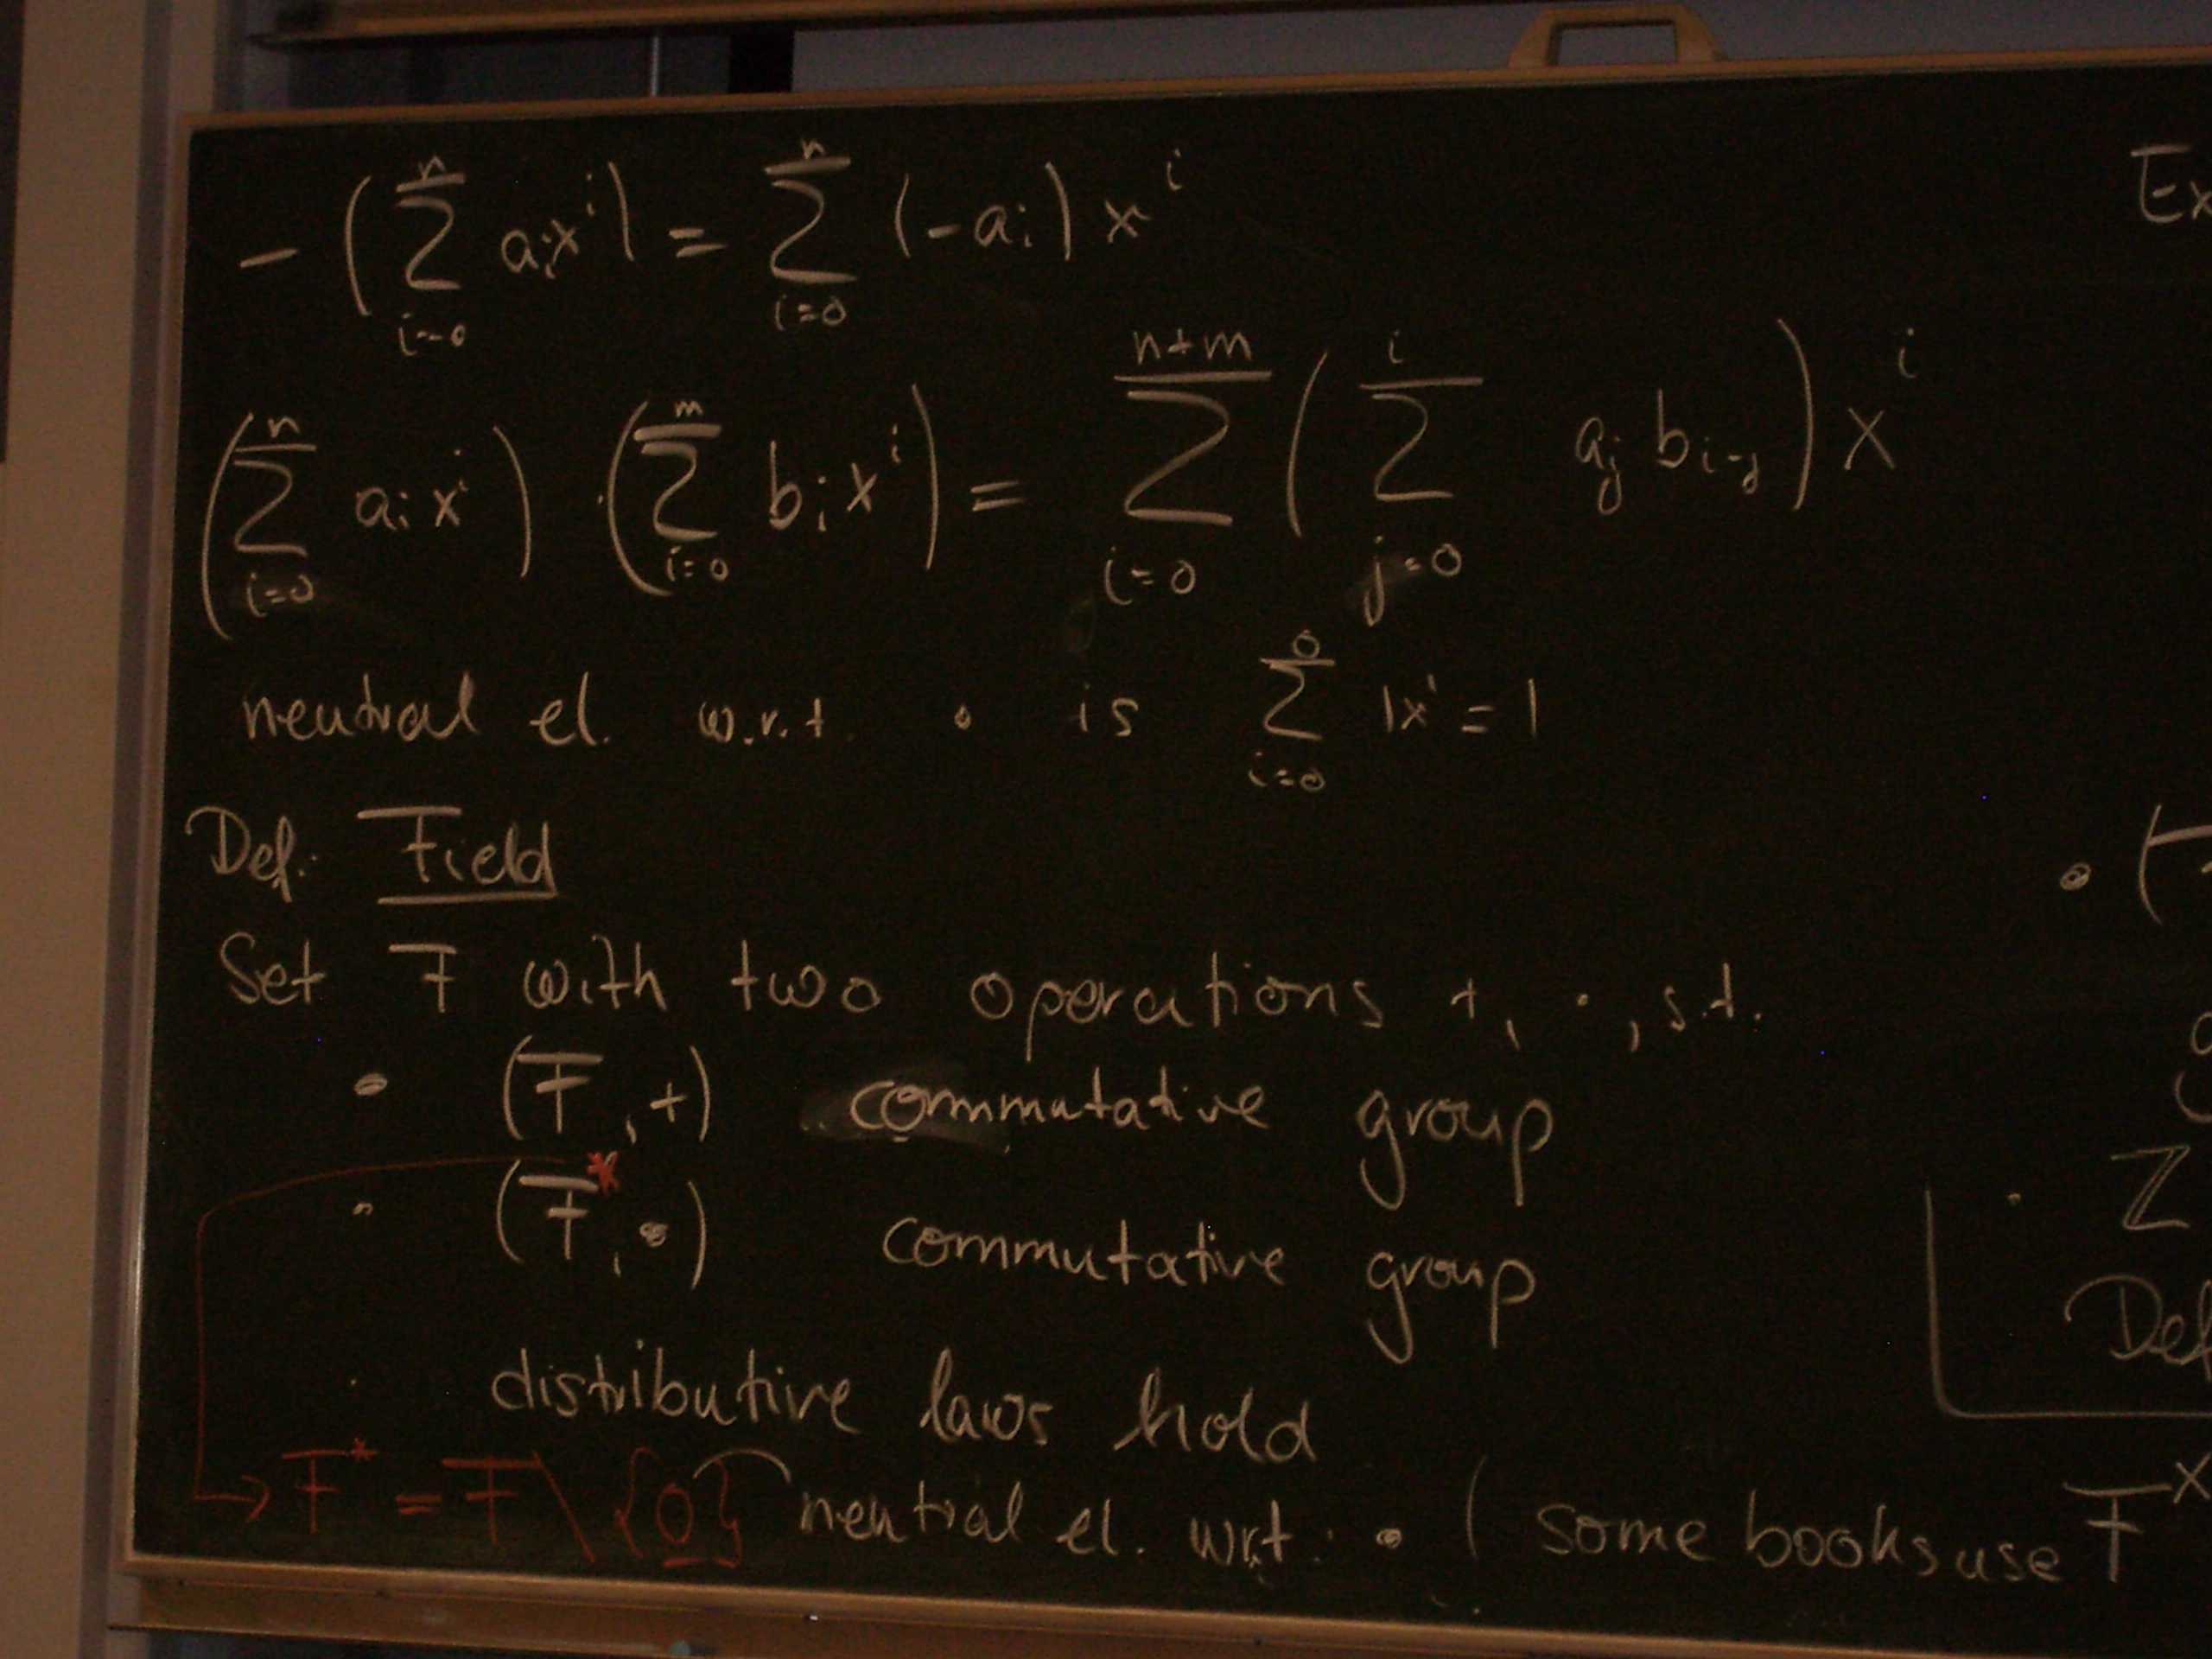 − (∑_{i=0}^{n} a_i x^i) = ∑_{i=0}^{n} (−a_i) x^i
(∑_{i=0}^{n} a_i x^i) · (∑_{i=0}^{m} b_i x^i) = ∑_{i=0}^{n+m} (∑_{j=0}^{i} a_j b_{i−j}) x^i
neutral el. w.r.t. · is ∑_{i=0}^{0} 1x^i = 1
Def: Field
Set F with two operations +, ·, s.t.
• (F, +) commutative group
• (F*, ·) commutative group
• distributive laws hold
→ F* = F \ {0} neutral el. wrt. · ( some books use F^x
Ex
• (
Z
Def